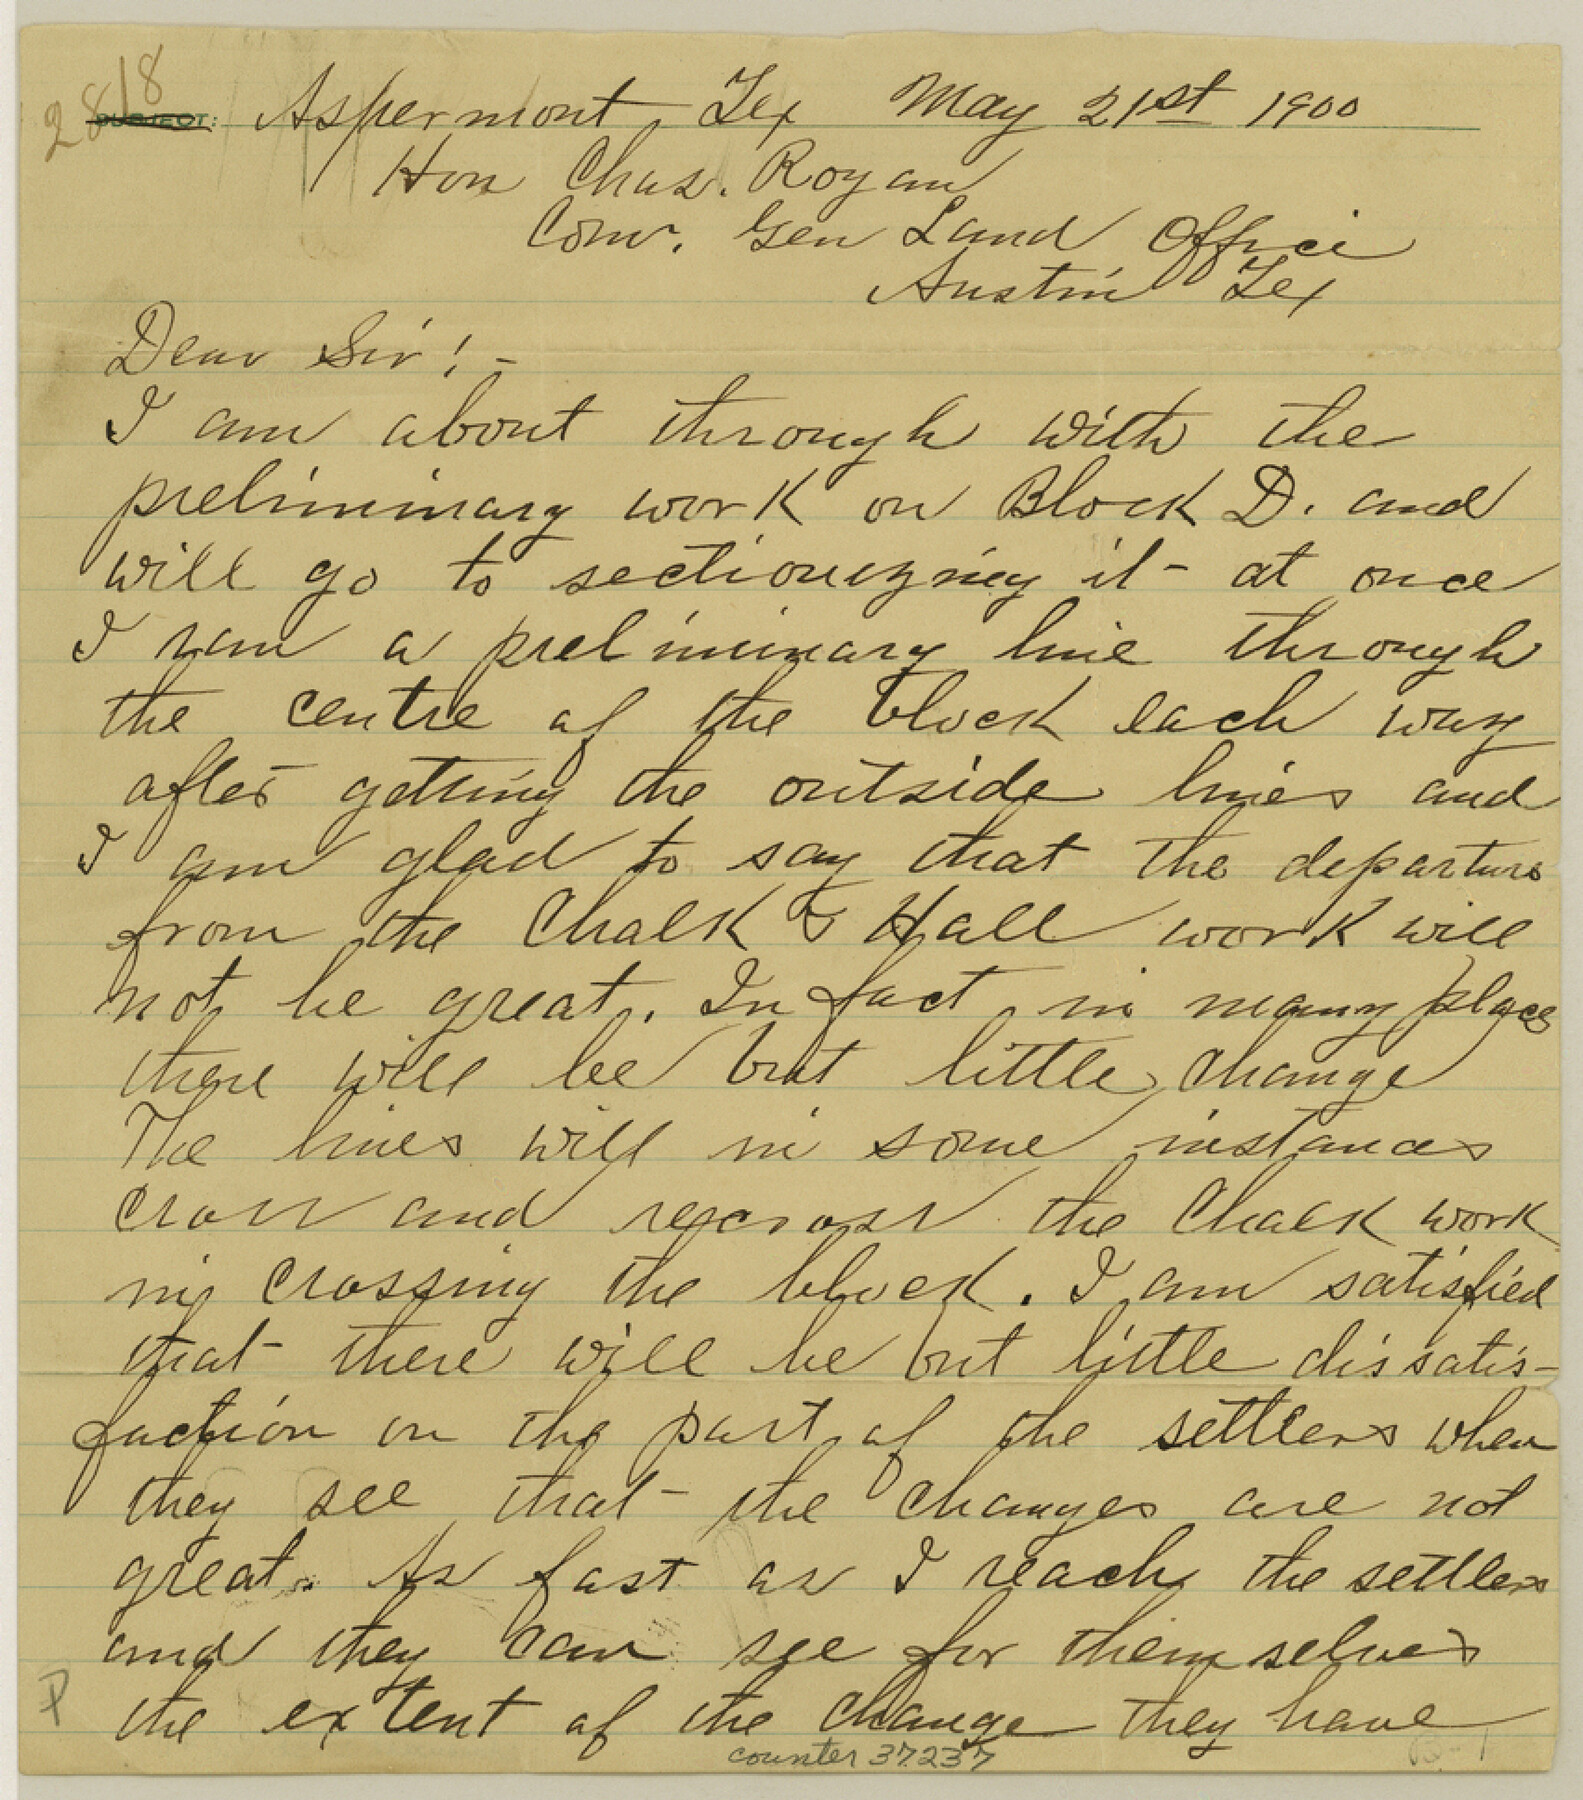 2818
SUBJECT: Aspermont, Tex May 21st 1900
Hon Chas. Rogan
Com. Gen Land Office
Austin Tex
Dear Sir! -
I am about through with the
preliminary work on Block D. and
will go to sectionizing it - at once
I ran a preliminary line through
the centre of the block each way
after getting the outside lines and
I am glad to say that the departure
from the Chalk & Hall work will
not be great. In fact in many places
there will be but little change
The lines will in some instances
cross and recross the Chalk work
in crossing the block. I am satisfied
that there will be but little dissatis-
faction on the part of the settlers when
they see that the changes are not
great. As fast as I reach the settlers
and they can see for themselves
the extent of the change they have
counter 37237